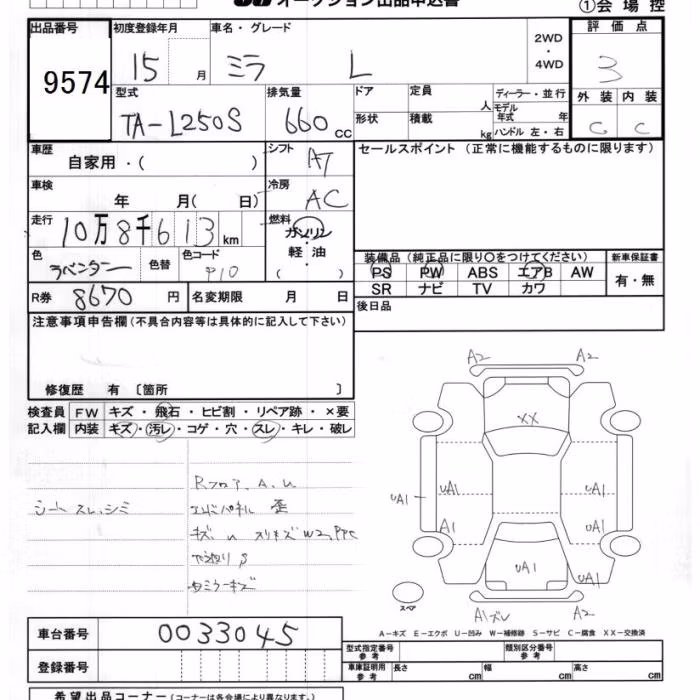 オークション出品申込書
①会場控
出品番号 初度登録年月 車名・グレード 2WD・4WD 評価点
9574 15 月 ミラ L 3
型式 排気量 ドア 定員 人 ディーラー・並行 外装 内装
TA-L250S 660 cc 形状 積載 kg モデル年式 年 ハンドル 左・右 C C
車歴 自家用・( ) シフト AT セールスポイント(正常に機能するものに限ります)
車検 年 月( 日) 冷房 AC
走行 10万8千613km 燃料 ガソリン・軽油・( )
色 ラベンダー 色替 色コード P10
装備品(純正品に限り○をつけてください) 新車保証書
PS PW ABS エアB AW 有・無
SR ナビ TV カワ
R券 8670円 名変期限 月 日 後日品
注意事項申告欄(不具合内容等は具体的に記入して下さい)
修復歴 有 〔箇所 〕
検査員 FW キズ・飛石・ヒビ割・リペア跡・×要
記入欄 内装 キズ・汚レ・コゲ・穴・スレ・キレ・破レ
Rフロア、A、U
シート スレ、シミ
キズ U
W2
キズ
A2 A2
XX
UA1 UA1 UA1
A1 UA1
UA1 UA1
スペア A1ズレ A2
A−キズ E−エクボ U−凹み W−補修跡 S−サビ C−腐食 XX−交換済
車台番号 0033045
型式指定番号 参考 類別区分番号 参考
登録番号 車庫証明用 参考 長さ cm 幅 cm 高さ cm
希望出品コーナー(コーナーは各会場により異なります。)